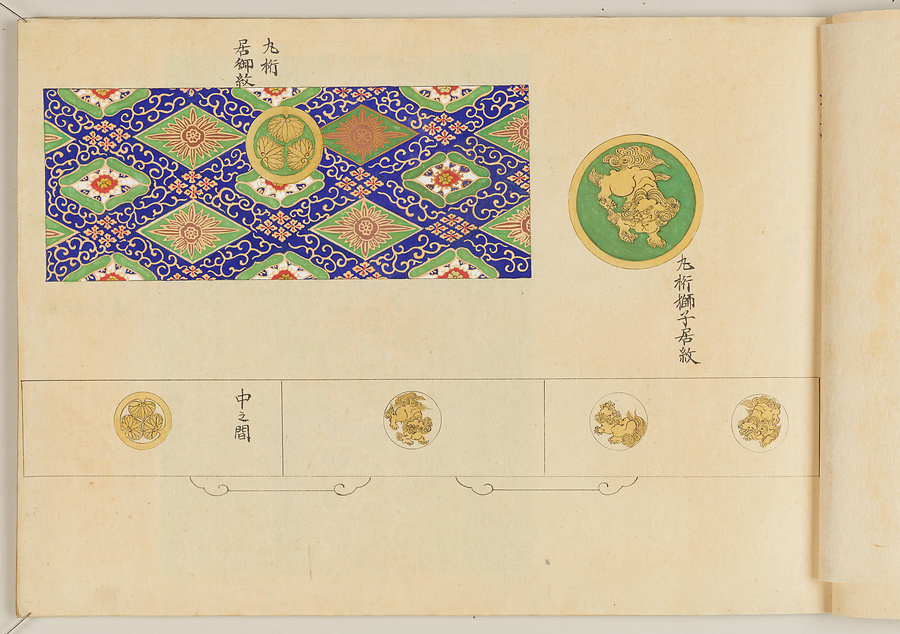 丸桁
居御紋
丸桁獅子居紋
中之間